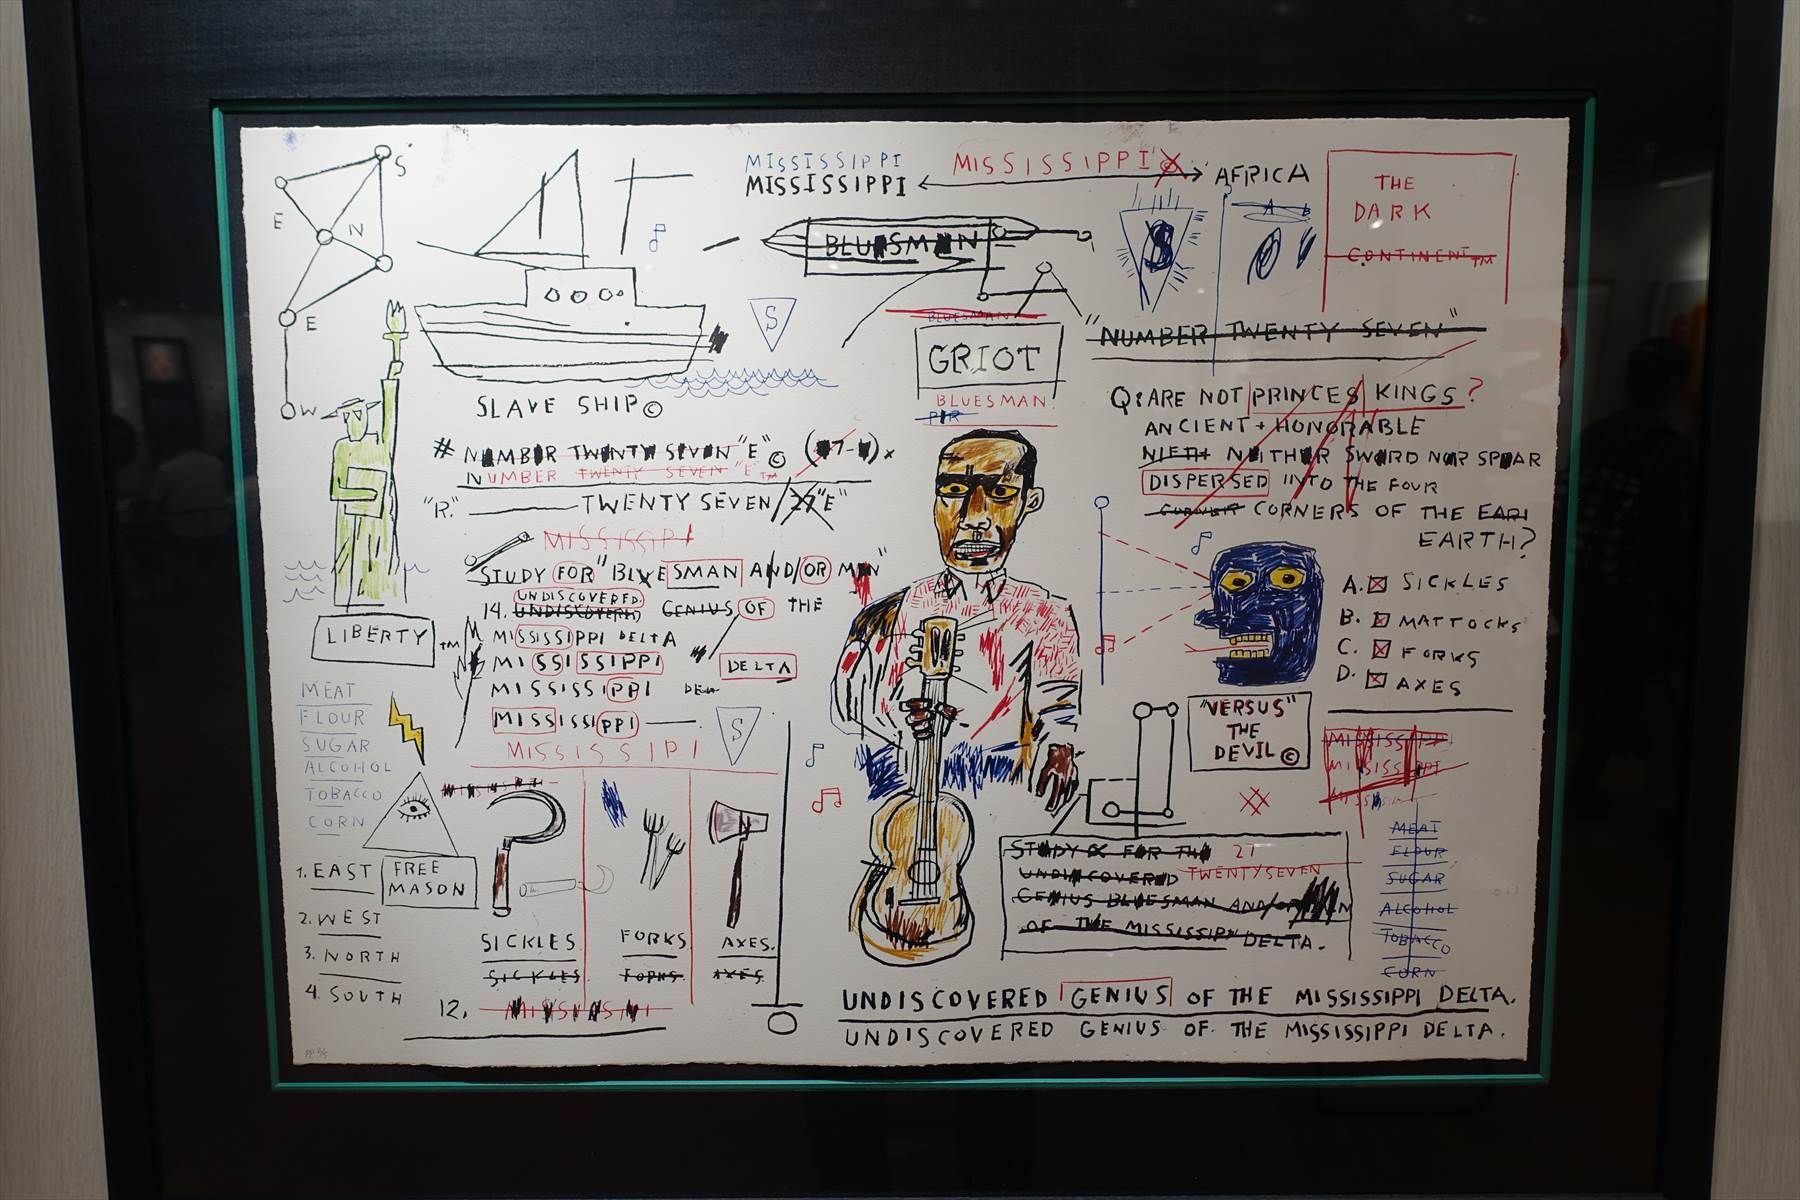 S
E
N
E
W
MISSISSIPPI
MISSISSIPPI
MISSISSIPPI ©
AFRICA
THE
DARK
CONTINENT™
BLUESMAN
S
A B
S
BLUESMAN
GRIOT
BLUESMAN
"NUMBER TWENTY SEVEN"
SLAVE SHIP©
# NUMBER TWENTY SEVEN "E"©
NUMBER TWENTY SEVEN "E"™
"R." TWENTY SEVEN/27"E"
Q: ARE NOT PRINCES KINGS?
ANCIENT + HONORABLE
NIETH NEITHER SWORD NOR SPEAR
DISPERSED INTO THE FOUR
CORNER CORNERS OF THE EARI
EARTH?
A. SICKLES
B. MATTOCKS
C. FORKS
D. AXES
MISSISSIPI
STUDY FOR "BLUESMAN AND/OR MEN"
UNDISCOVERED
14. UNDISCOVERD GENIUS OF THE
MISSISSIPPI DELTA
MISSISSIPPI
DELTA
MISSISSIPPI
MISSISSIPPI
MISSISSIPI
S
LIBERTY™
MEAT
FLOUR
SUGAR
ALCOHOL
TOBACCO
CORN
1. EAST
2. WEST
3. NORTH
4. SOUTH
FREE
MASON
SICKLES
SICKLES
FORKS
FORKS
AXES.
AXES.
12.
"VERSUS"
THE
DEVIL©
MISSISSIPPI
MISSISSIPPI
STUDY FOR THE 27
UNDISCOVERED TWENTYSEVEN
GENIUS BLUESMAN AND/OR
OF THE MISSISSIPPI DELTA.
MEAT
FLOUR
SUGAR
ALCOHOL
TOBACCO
CORN
UNDISCOVERED GENIUS OF THE MISSISSIPPI DELTA.
UNDISCOVERED GENIUS OF THE MISSISSIPPI DELTA.
PP 2/5